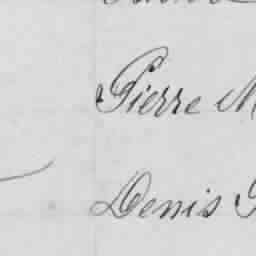 Pierre M
Denis